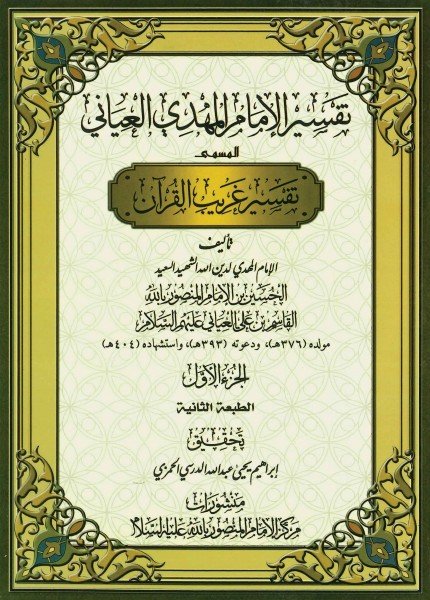 تفسير الإمام المهدي العياني
المسمى
تفسير غريب القرآن
تأليف
الإمام المهدي لدين الله الشهيد السعيد
الحسين بن الإمام المنصور بالله
القاسم بن علي العياني عليهم السلام
مولده (٣٧٦هـ)، ودعوته (٣٩٣هـ)، واستشهاده (٤٠٤هـ)
الجزء الأول
الطبعة الثانية
تحقيق
إبراهيم يحيى عبدالله الدرسي الحمزي
منشورات
مركز الإمام المنصور بالله عليه السلام